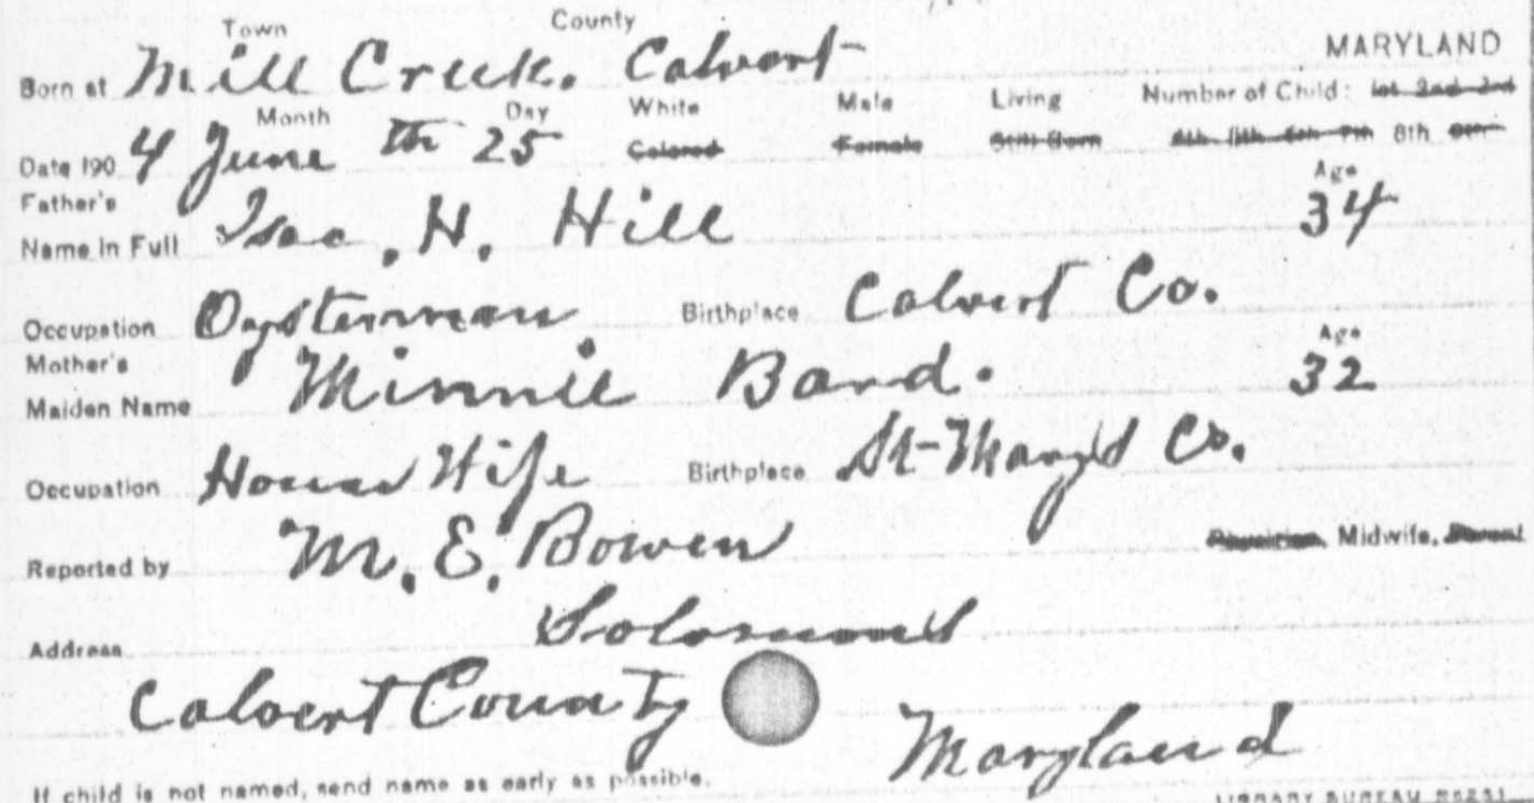 Town County
Born at Mill Creek. Calvert MARYLAND
Month Day White Male Living Number of Child: 1st 2nd 3rd
Date 1904 June th 25 Colored Female Still Born 4th 5th 6th 7th 8th 9th
Father's Age
Name in Full Isac, H. Hill 34
Occupation Oysterman Birthplace Calvert Co.
Mother's Age
Maiden Name Minnie Bard. 32
Occupation House Wife Birthplace St-Mary's Co.
Reported by M. E. Bowen Physician, Midwife, Parent
Address Solomon's
Calvert County Maryland
If child is not named, send name as early as possible.
LIBRARY BUREAU